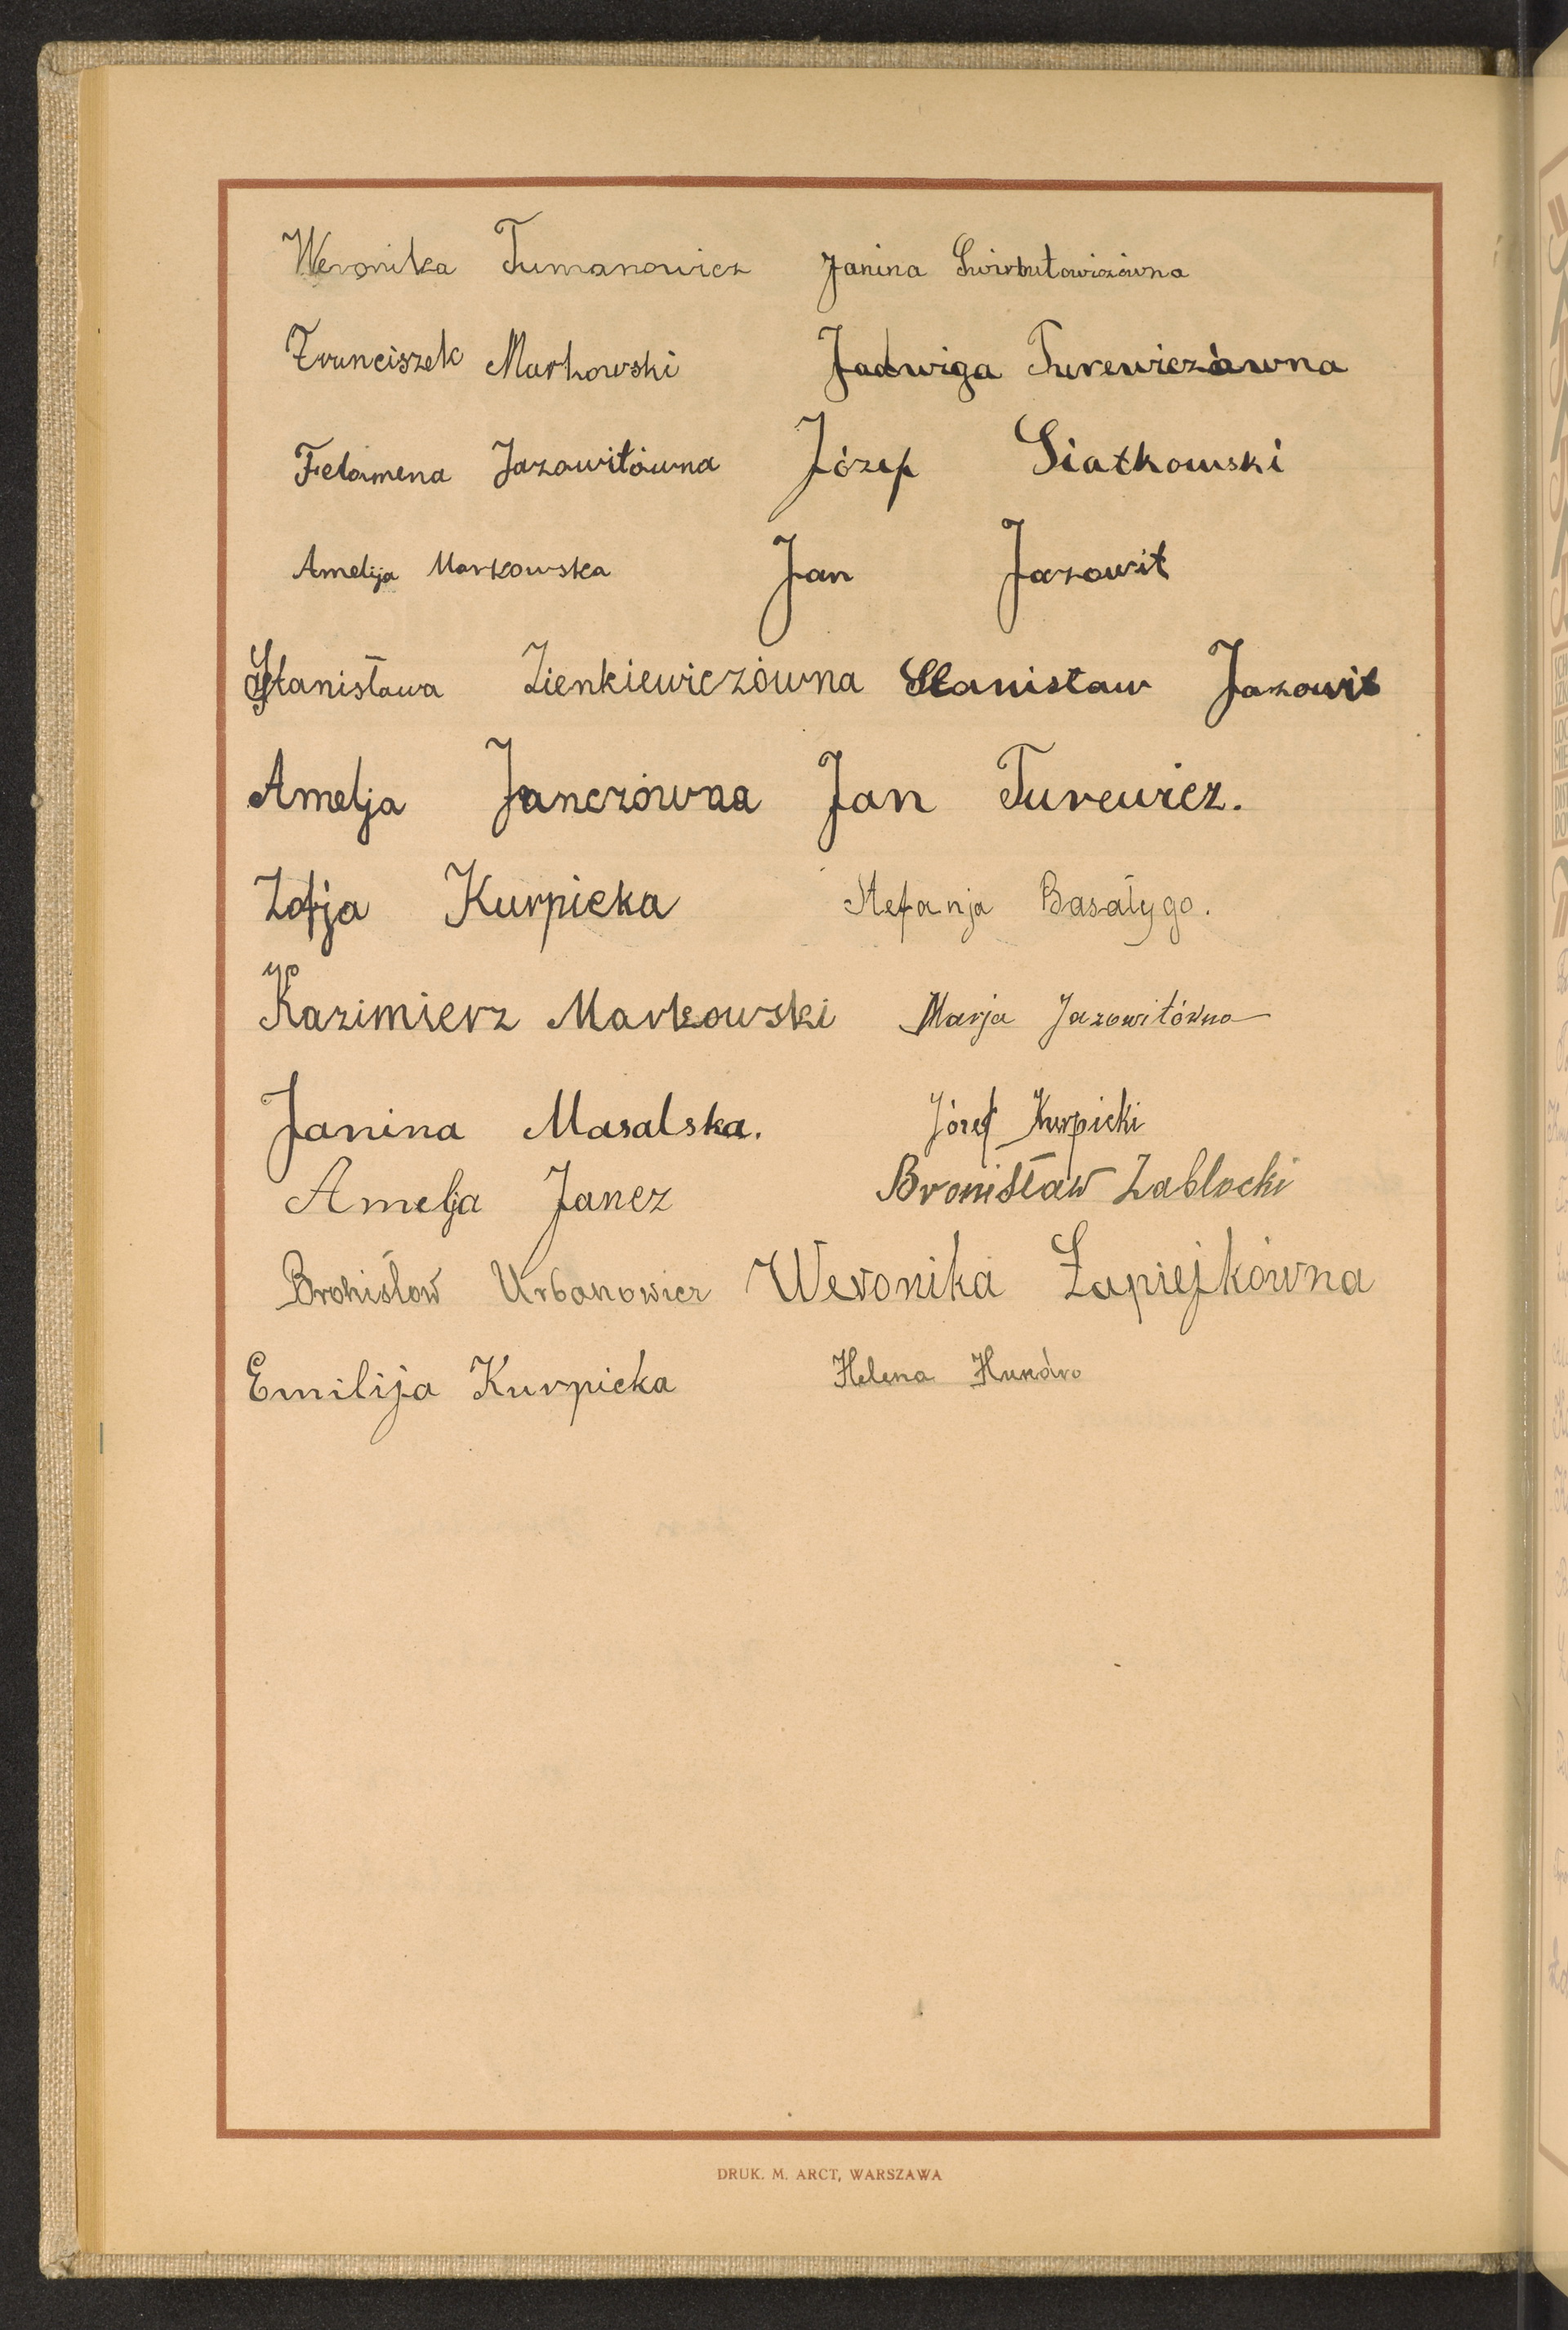 Weronika Tumanowicz Janina Świrbutowiczówna
Franciszek Markowski Jadwiga Turewiczówna
Felomena Jazowitówna Józef Siatkowski
Amelija Markowska Jan Jazowit
Stanisława Zienkiewiczówna Stanisław Jazowit
Amelja Janczówna Jan Turewicz.
Zofja Kurpicka Stefanja Basałygo.
Kazimierz Markowski Marja Jazowitówna
Janina Masalska. Józef Kurpicki
Amelja Jancz Bronisław Zabłocki
Bronisław Urbanowicz Weronika Łapiejkówna
Emilija Kurpicka Helena Hundro
DRUK. M. ARCT, WARSZAWA